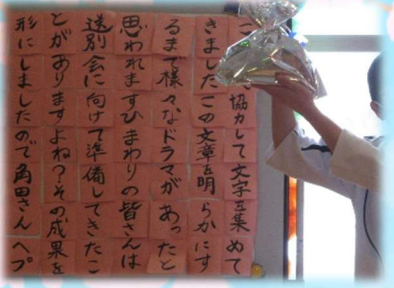 協力して文字を集めて
きましたこの文章を明らかにす
るまで様々なドラマがあったと
思われますひまわりの皆さんは
送別会に向けて準備してきたこ
とがありますよね?その成果を
形にしましたので角田さんへプ